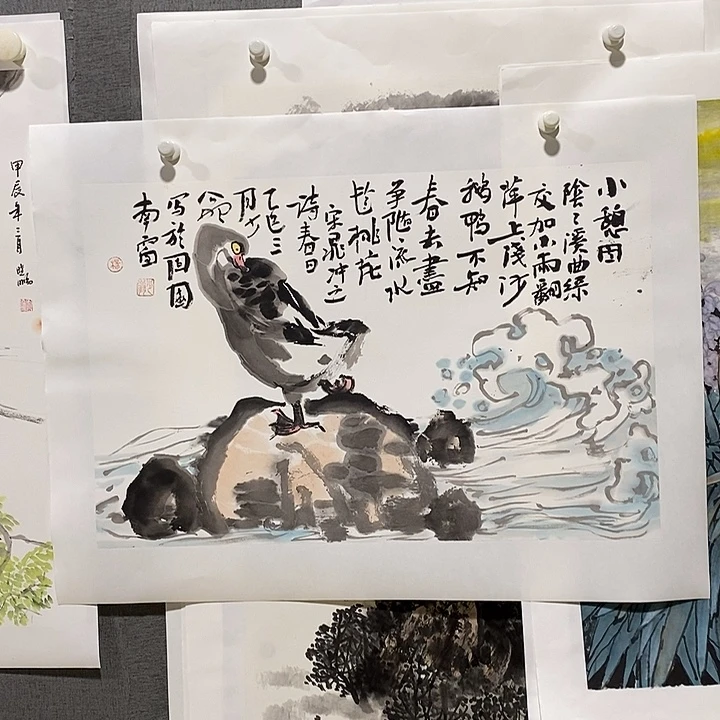 小憩图
陰々溪曲緑
交加小雨翻
萍上淺沙
鵝鴨不知
春去盡
爭隨流水
趁桃花
宋晁冲之
詩春日
乙巳三
月少
寫於田園
南窗
甲辰年三月